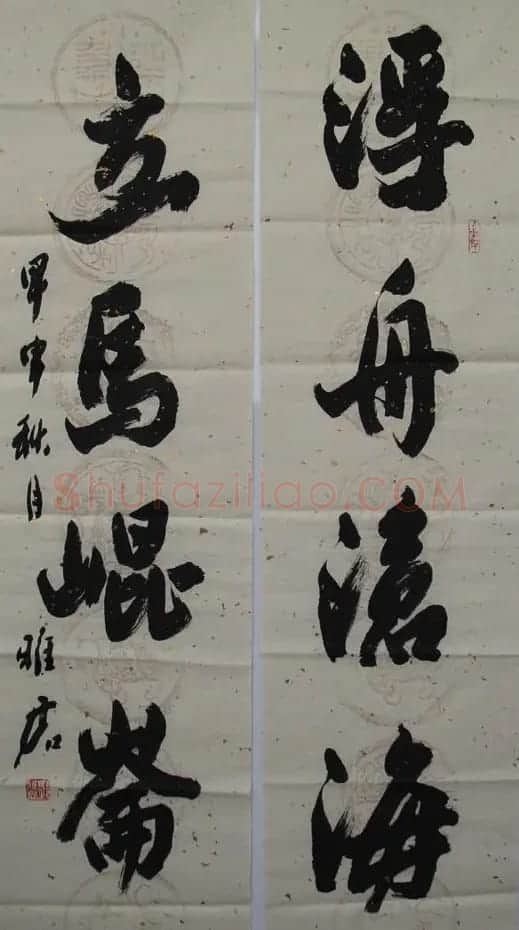 浮舟滄海
立馬崐崙
甲申秋月 雅君
Shufaziliao.COM